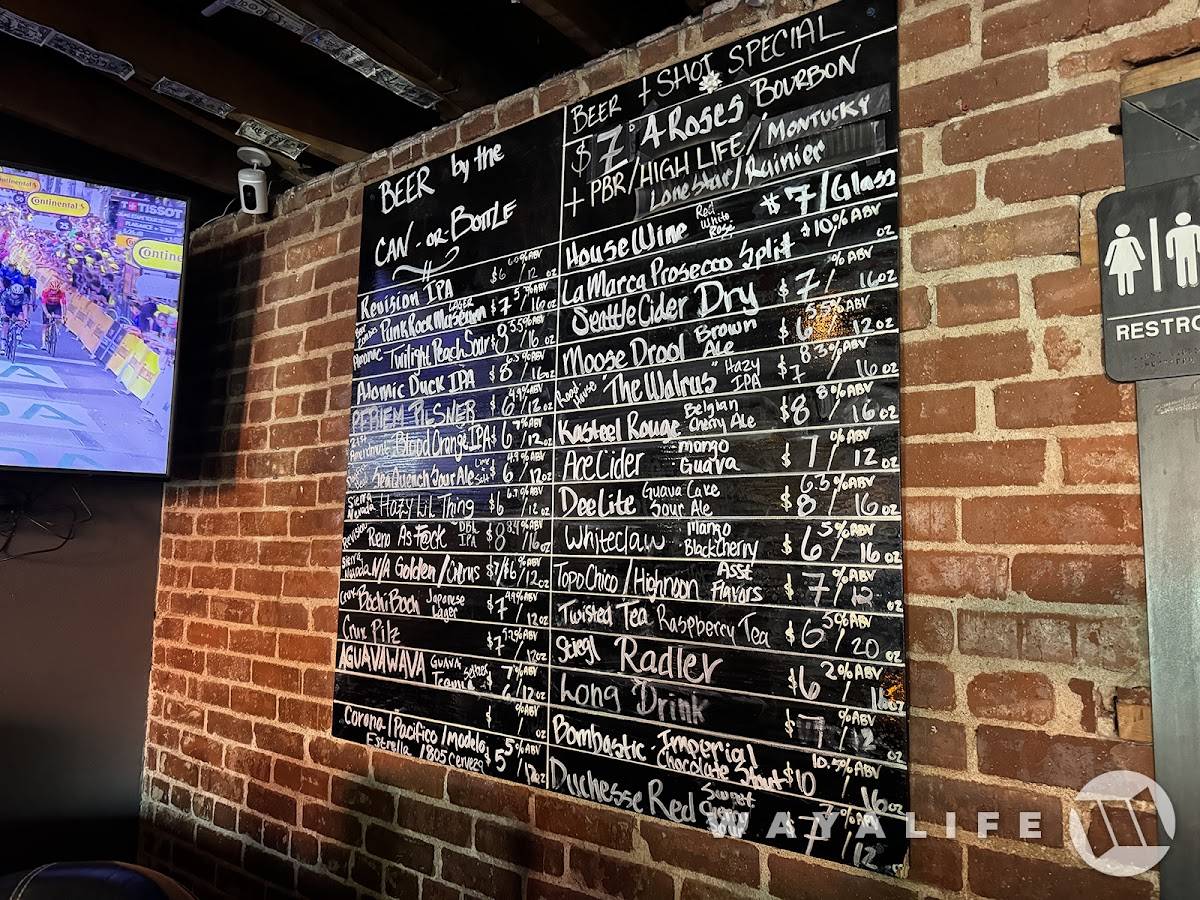 Continental
Continental
TISSOT
Contine
BEER by the
CAN - OR - BOTTLE
Revision IPA $6 6.0% ABV / 12 oz
PunkRock Museum LAGER $7 5.% ABV / 16 oz
Atomic Twilight Peach Sour $8 5.5% ABV / 16 oz
Atomic Duck IPA $8 6.5% ABV / 16 oz
PFRIEM PILSNER $6 4.9% ABV / 12 oz
21st Amendment Blood Orange IPA $6 7% ABV / 12 oz
SeaQuench Sour Ale Lime Salt $6 4.9% ABV / 12 oz
Sierra Nevada Hazy Lil Thing $6 6.7% ABV / 12 oz
Revision Reno As F@ck DBL IPA $8 8.4% ABV / 16 oz
Sierra Nevada N/A Golden / Citrus $7/$6 % ABV / 12 oz
Crux BochiBoch Japanese Lager $7 4.9% ABV / 12 oz
Crux Pilz $7 5.2% ABV / 12 oz
AGUAVAWAVA GUAVA Seltzer $6 7% ABV / 12 oz
$ % ABV / oz
Corona / Pacifico / Modelo
Estrella / 805 Cerveza $5 5% ABV / 12 oz
BEER + SHOT SPECIAL
$7 4 Roses BOURBON
+ PBR / HIGH LIFE / MONTUCKY
Lone Star / Rainier
House Wine Red White Rose $7/Glass
La Marca Prosecco Split $10 % ABV / oz
Seattle Cider Dry $7 % ABV / 16 oz
Moose Drool Brown Ale $6 5.5% ABV / 12 oz
Road House "The Walrus" Hazy IPA $7 8.3% ABV / 16 oz
Kasteel Rouge Belgian Cherry Ale $8 8% ABV / 16 oz
Ace Cider mango Guava $7 % ABV / 12 oz
DeeLite Guava Cake Sour Ale $8 6.3% ABV / 16 oz
Whiteclaw Mango BlackCherry $6 5% ABV / 16 oz
Topo Chico / Highnoon Asst Flavors $7 % ABV / 12 oz
Twisted Tea Raspberry Tea $6 5% ABV / 20 oz
Stiegl Radler $6 2% ABV / 16 oz
Long Drink $7 % ABV / 12 oz
Bombastic - Imperial Chocolate Stout $10 10.5% ABV / 16 oz
Duchesse Red Sweet $7 7% ABV / 12 oz
RESTRO
WAYALIFE